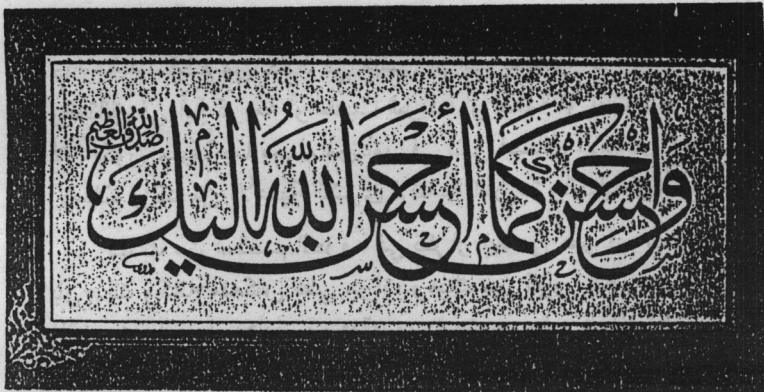 وَاحْسِنْ كَمَا أَحْسَنَ اللّٰهُ اِلَيْكَ
صدق الله العظيم